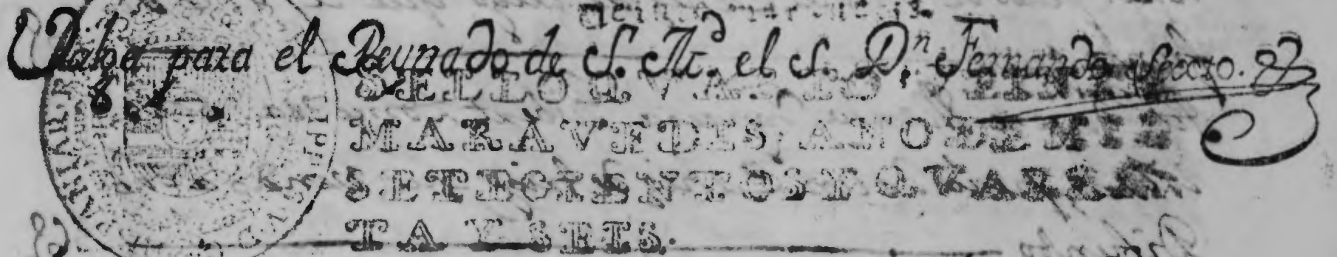 Valga para el Reynado de S. M.d el S. D.n Fernando sexto.
SELLO QVARTO, VEINTE
MARAVEDIS, AÑO DE MIL
SETECIENTOS Y QVAREN
TA Y SEIS.